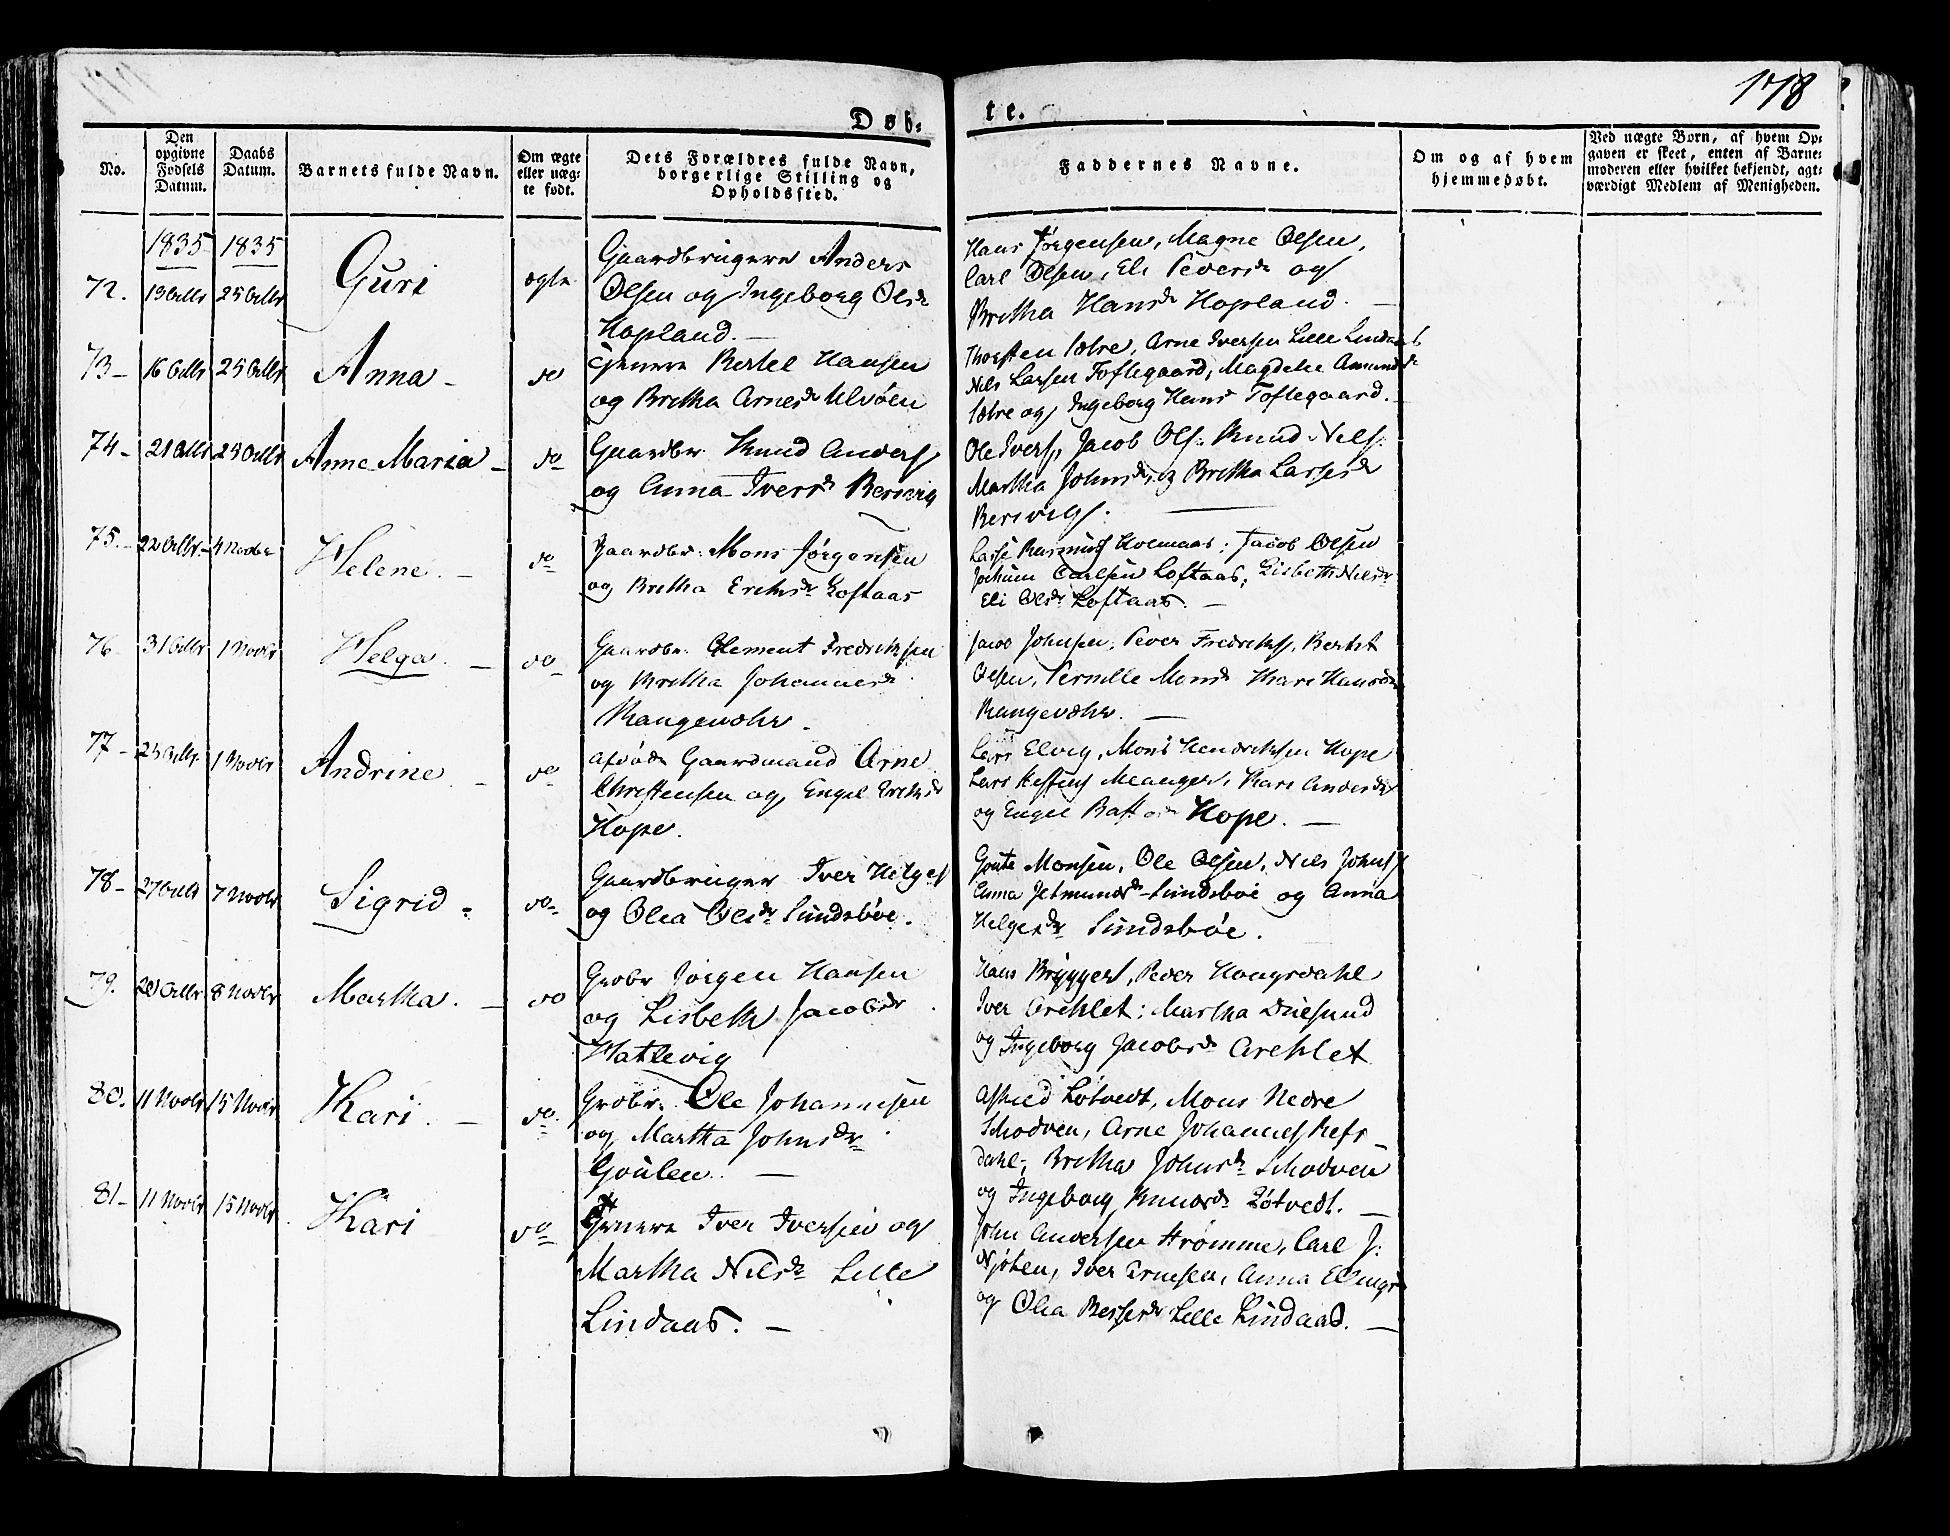 178
Døb-
te.
No.
Den opgivne Fødsels Datum.
Daabs Datum.
Barnets fulde Navn.
Om ægte eller uæg-te født.
Dets Forældres fulde Navn, borgerlige Stilling og Opholdssted.
Faddernes Navne.
Om og af hvem hjemmedøbt.
Ved uægte Børn, af hvem Op-gaven er skeet, enten af Barne-moderen eller hvilket bekjendt, agt-værdigt Medlem af Menigheden.
1835 1835
72. 13 Octbr 25 Octbr Guri ægte
Gaardbrugere Anders
Olsen og Ingeborg Olsdr
Hopland. —
Hans Jørgensen, Magne Olsen,
Carl Olsen, Eli Pedersdr og
Britha Hansdr Hopland. —
73 — 16 Octbr 25 Octbr Anna — do
Tjenere Bertel Hansen
og Britha Arnesdr Ulvøen
Thorsten, Arne Iversen Lille Lindaas
Nils Larsen Toftegaard, Magdele
og Ingeborg Hans Toftegaard.
74 — 21 Octbr 25 Octbr Anne Maria — do
Gaardbr. Knud Anders
og Anna Iversdr Bersvig
Ole Ivers, Jacob Ols. Knud Nels.
Martha Johnsdr og Britha Larsdr
Bersvig. —
75. — 22 Octbr. 4 Novbr Helene. — do
Gaardbr. Mons Jørgensen
og Britha Eriksdr Loftaas
Lasse Rasmus; Jacob Olsen
Jochum Carlsen Loftaas, Lisbeth Nilsdr
Eli Olsdr Loftaas. —
76 — 31 Octbr 1 Novbr Helga. — do
Gaardbr. Clement Fredriksen
og Britha Johannesdr
Jacob Johnsen, Peder Fredriks, Bertel
Olsen, Pernille Monsdr Kari Hansdr
77 — 25 Octbr 1 Novbr Andrine — do
Gaardmand Arne
Christensen og Engel Eriksdr
Hope.
Lars Elvig, Mons Hendriksen Hope
Lars Steffens Manger, Kari Andersdr
og Engel Hope. —
78 — 27 Octbr 7 Novbr Sigrid. do
Gaardbruger Iver Helges
og Olea Olsdr Sundsbøe.
Goute Monsen, Ole Olsen, Nils Johns
Anna Jetmundsdr Sundsbøe og Anna
Helgesdr Sundsbøe.
79. 28 Octbr 8 Novbr Martha. — do
Grdbr Jørgen Hansen
og Lisbeth Jacobsdr
Hatlevig
Hans Brygger, Peder Hougsdahl
Iver Areklet; Martha Duesund
og Ingeborg Jacobsdr Areklet
80. 11 Novbr 15 Novbr Kari. — do
Grdbr. Ole Johannesen
og Martha Johnsdr
Goulen. —
Astrid Løtvedt, Mons Nedre
Schodven, Arne Johannes Refs-
dahl, Britha Johnsdr Schodven
og Ingeborg Knudsdr Løtvedt. —
81 — 11 Novbr 15 Novbr Kari do
Tjenere Iver Iversen og
Martha Nilsdr Lille
Lindaas. —
John Andersen Strømme, Carl J:
Njøten, Iver Arnesen, Anna Ellings
og Olea Bessesdr Lille Lindaas. —